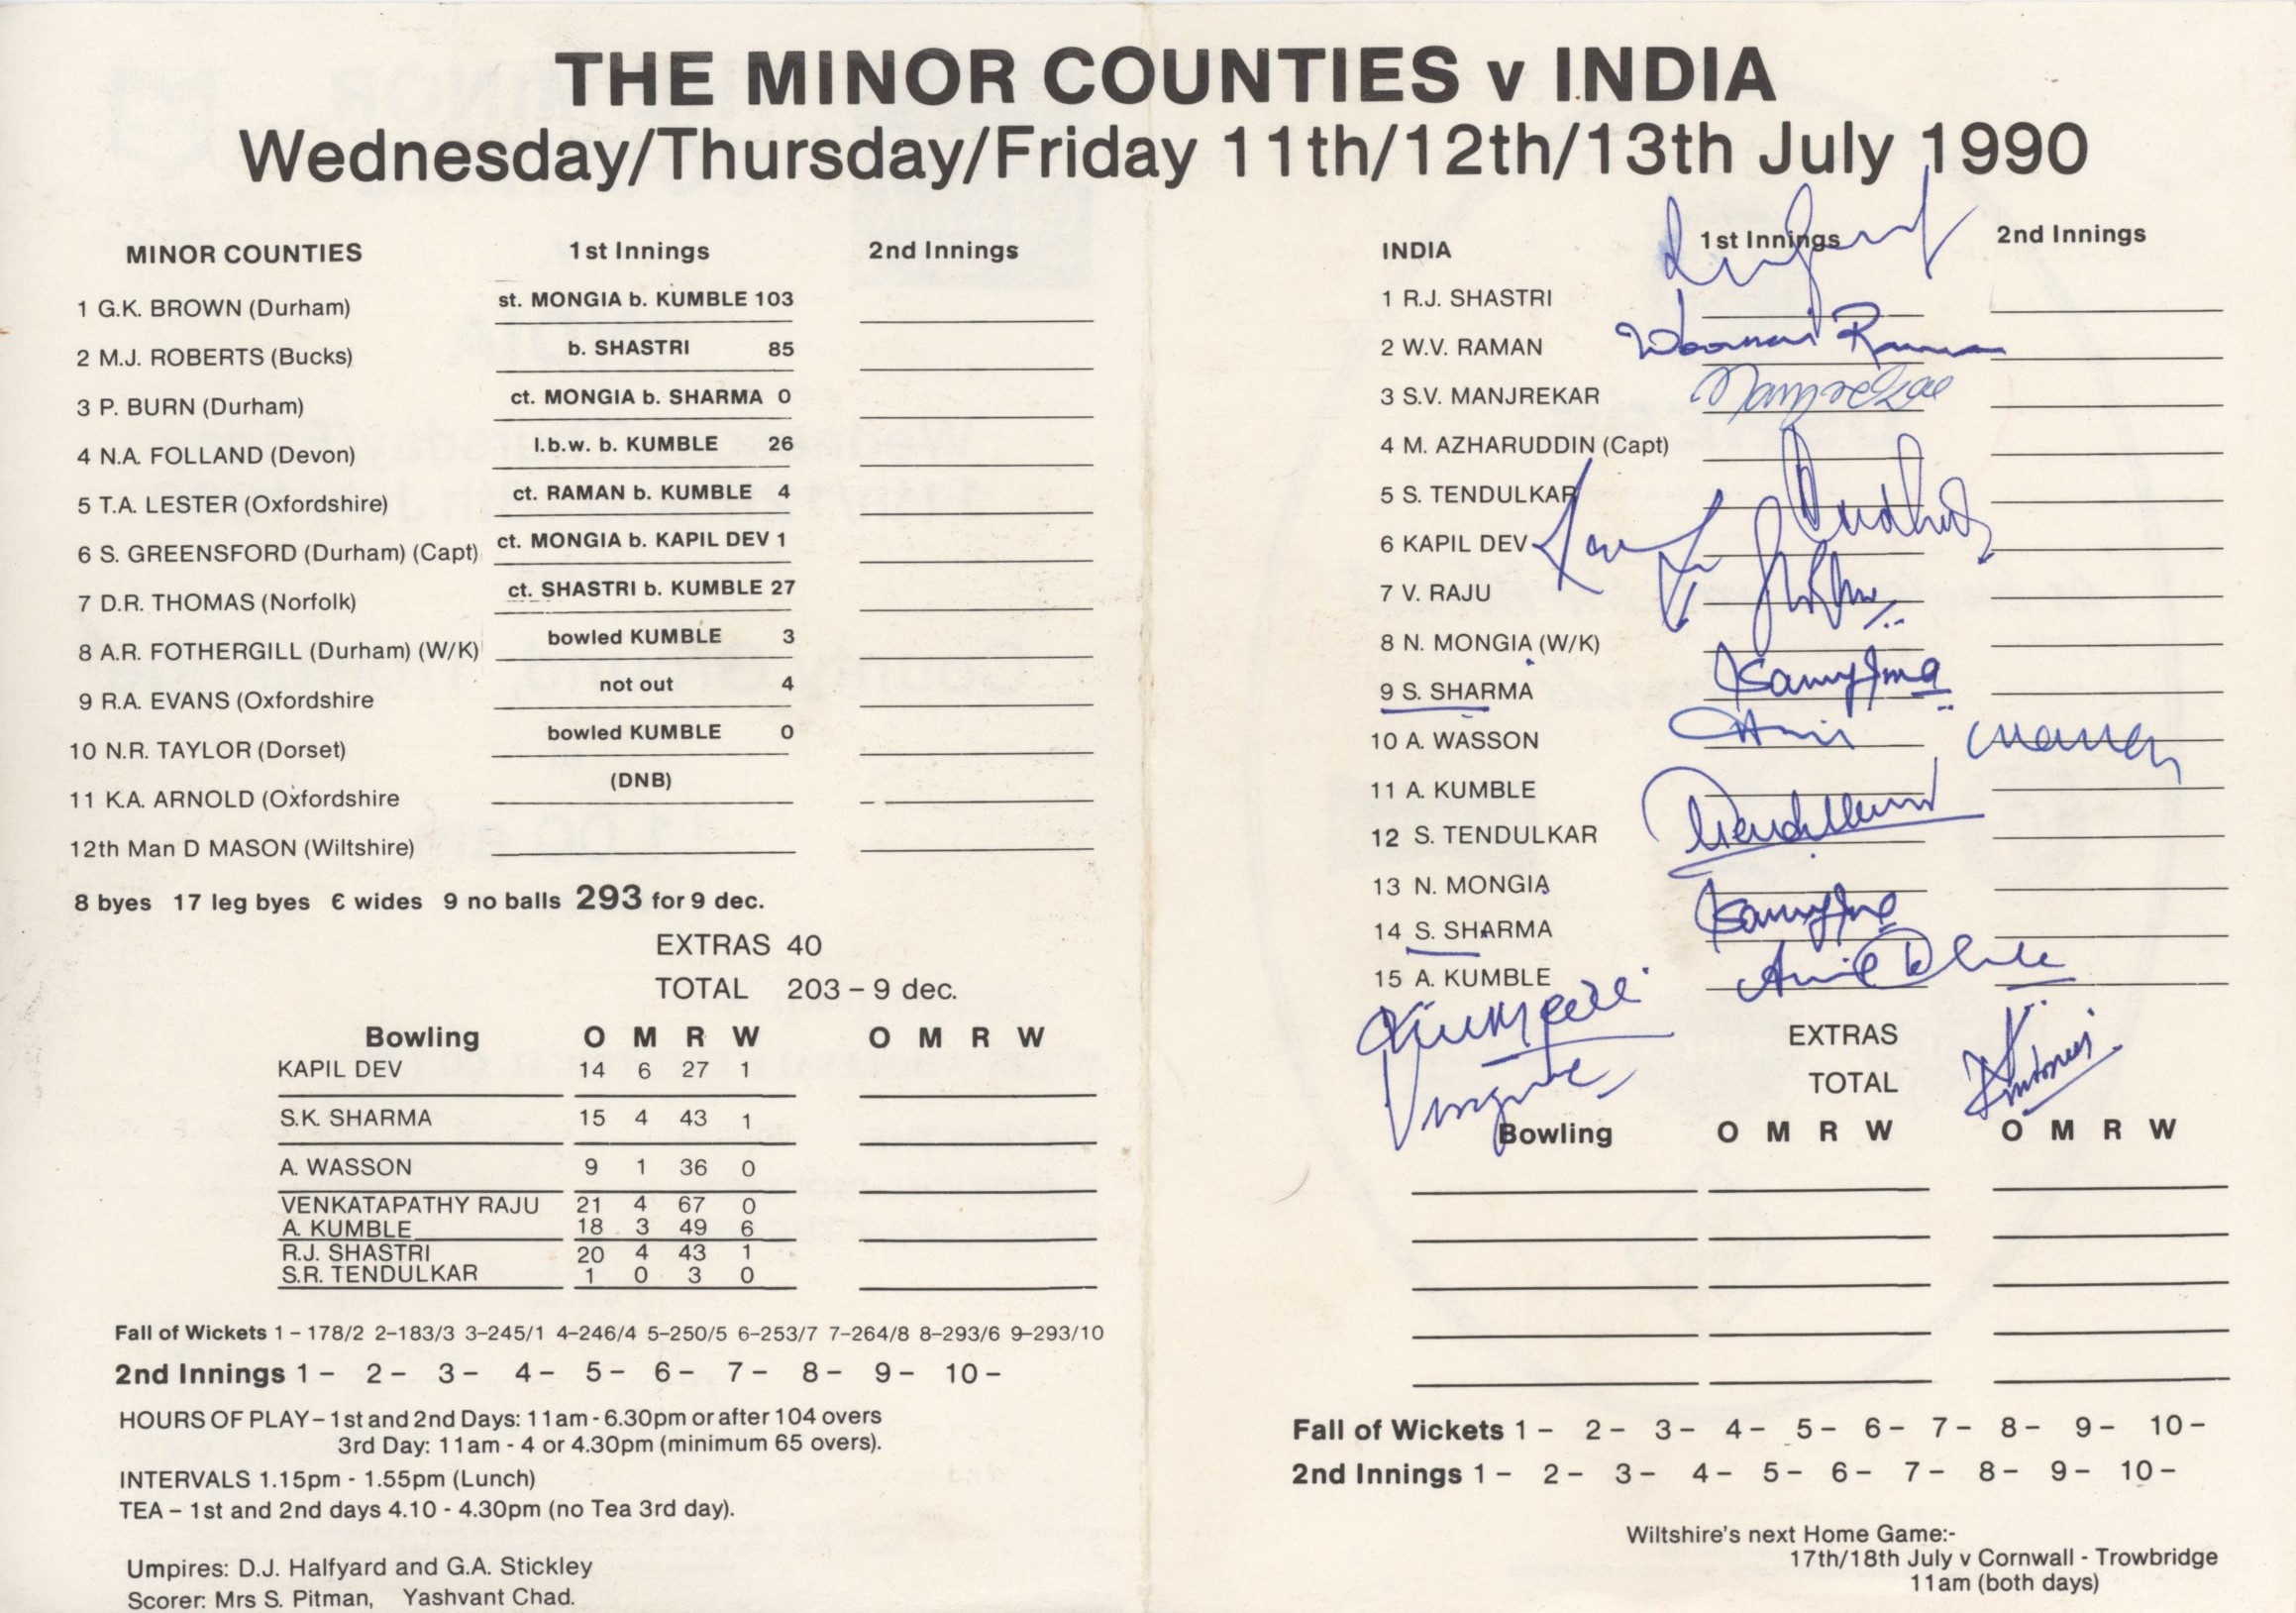 THE MINOR COUNTIES v INDIA
Wednesday/Thursday/Friday 11th/12th/13th July 1990
MINOR COUNTIES 1st Innings 2nd Innings
1 G.K. BROWN (Durham) st. MONGIA b. KUMBLE 103
2 M.J. ROBERTS (Bucks) b. SHASTRI 85
3 P. BURN (Durham) ct. MONGIA b. SHARMA 0
4 N.A. FOLLAND (Devon) l.b.w. b. KUMBLE 26
5 T.A. LESTER (Oxfordshire) ct. RAMAN b. KUMBLE 4
6 S. GREENSFORD (Durham) (Capt) ct. MONGIA b. KAPIL DEV 1
7 D.R. THOMAS (Norfolk) ct. SHASTRI b. KUMBLE 27
8 A.R. FOTHERGILL (Durham) (W/K) bowled KUMBLE 3
9 R.A. EVANS (Oxfordshire not out 4
10 N.R. TAYLOR (Dorset) bowled KUMBLE 0
11 K.A. ARNOLD (Oxfordshire (DNB)
12th Man D MASON (Wiltshire)
8 byes 17 leg byes 6 wides 9 no balls 293 for 9 dec.
EXTRAS 40
TOTAL 203 – 9 dec.
Bowling O M R W O M R W
KAPIL DEV 14 6 27 1
S.K. SHARMA 15 4 43 1
A. WASSON 9 1 36 0
VENKATAPATHY RAJU 21 4 67 0
A. KUMBLE 18 3 49 6
R.J. SHASTRI 20 4 43 1
S.R. TENDULKAR 1 0 3 0
Fall of Wickets 1 – 178/2 2–183/3 3–245/1 4–246/4 5–250/5 6–253/7 7–264/8 8–293/6 9–293/10
2nd Innings 1 – 2 – 3 – 4 – 5 – 6 – 7 – 8 – 9 – 10 –
HOURS OF PLAY – 1st and 2nd Days: 11am - 6.30pm or after 104 overs
3rd Day: 11am - 4 or 4.30pm (minimum 65 overs).
INTERVALS 1.15pm - 1.55pm (Lunch)
TEA – 1st and 2nd days 4.10 - 4.30pm (no Tea 3rd day).
Umpires: D.J. Halfyard and G.A. Stickley
Scorer: Mrs S. Pitman, Yashvant Chad.
INDIA 1st Innings 2nd Innings
1 R.J. SHASTRI
2 W.V. RAMAN Woorkeri Raman
3 S.V. MANJREKAR Manjrekar
4 M. AZHARUDDIN (Capt)
5 S. TENDULKAR
6 KAPIL DEV
7 V. RAJU
8 N. MONGIA (W/K)
9 S. SHARMA
10 A. WASSON
11 A. KUMBLE
12 S. TENDULKAR Tendulkar
13 N. MONGIA
14 S. SHARMA
15 A. KUMBLE Anil
EXTRAS
TOTAL
Bowling O M R W O M R W
Fall of Wickets 1 – 2 – 3 – 4 – 5 – 6 – 7 – 8 – 9 – 10 –
2nd Innings 1 – 2 – 3 – 4 – 5 – 6 – 7 – 8 – 9 – 10 –
Wiltshire's next Home Game:-
17th/18th July v Cornwall - Trowbridge
11am (both days)